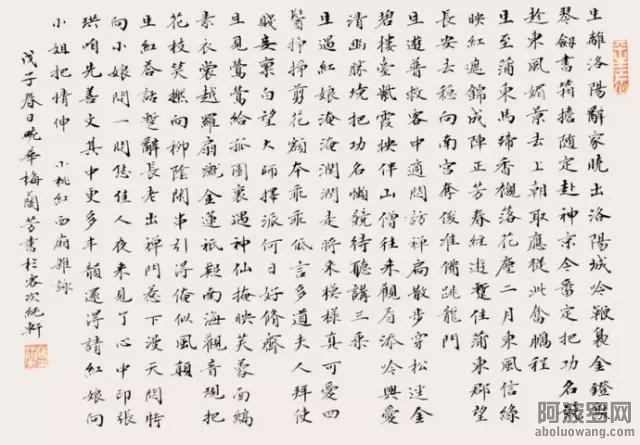 生離洛陽辭家曉出洛陽城吟鞭裊金鐙
琴劍書箱擔隨定赴神京今番定把功名競
趁東風媚景去上朝取應從此奮鵬程
生至蒲東馬蹄香襯落花塵二月東風信綠
映紅遮錦成陣正芳春經遊暫住蒲東郡望
長安去穩向南宮奪俊准備跳龍門
生遊普救客中適悶訪禪扃散步穿松逕金
碧樓臺紫霞映伴山僧往來觀眉添吟興愛
清幽勝境把功名懶競待聽講三乘
生遇紅娘淹淹潤潤是將來模樣真可愛四
鬢掙掙剪花顏本乖乖低言多道夫人拜使
賤妾稟白望大師擇派何日好脩齋
生見鶯鶯給孤園裏遇神仙掩映芙蓉面縞
素衣裳越羅扇蹴金蓮祇疑南海觀音現把
花枝笑撚向柳陰閑串引得俺似風顛
生紅荅話暫辭長老出禪門惹下漫天悶特
向小娘問一問恁佳人夜來見了心中印張
珙咱先善文其中更多丰韻還得請紅娘向
小姐把情伸 小桃紅西廂雜詠
戊子春日畹華梅蘭芳書於客次純軒
阿波罗网
aboluowang.com